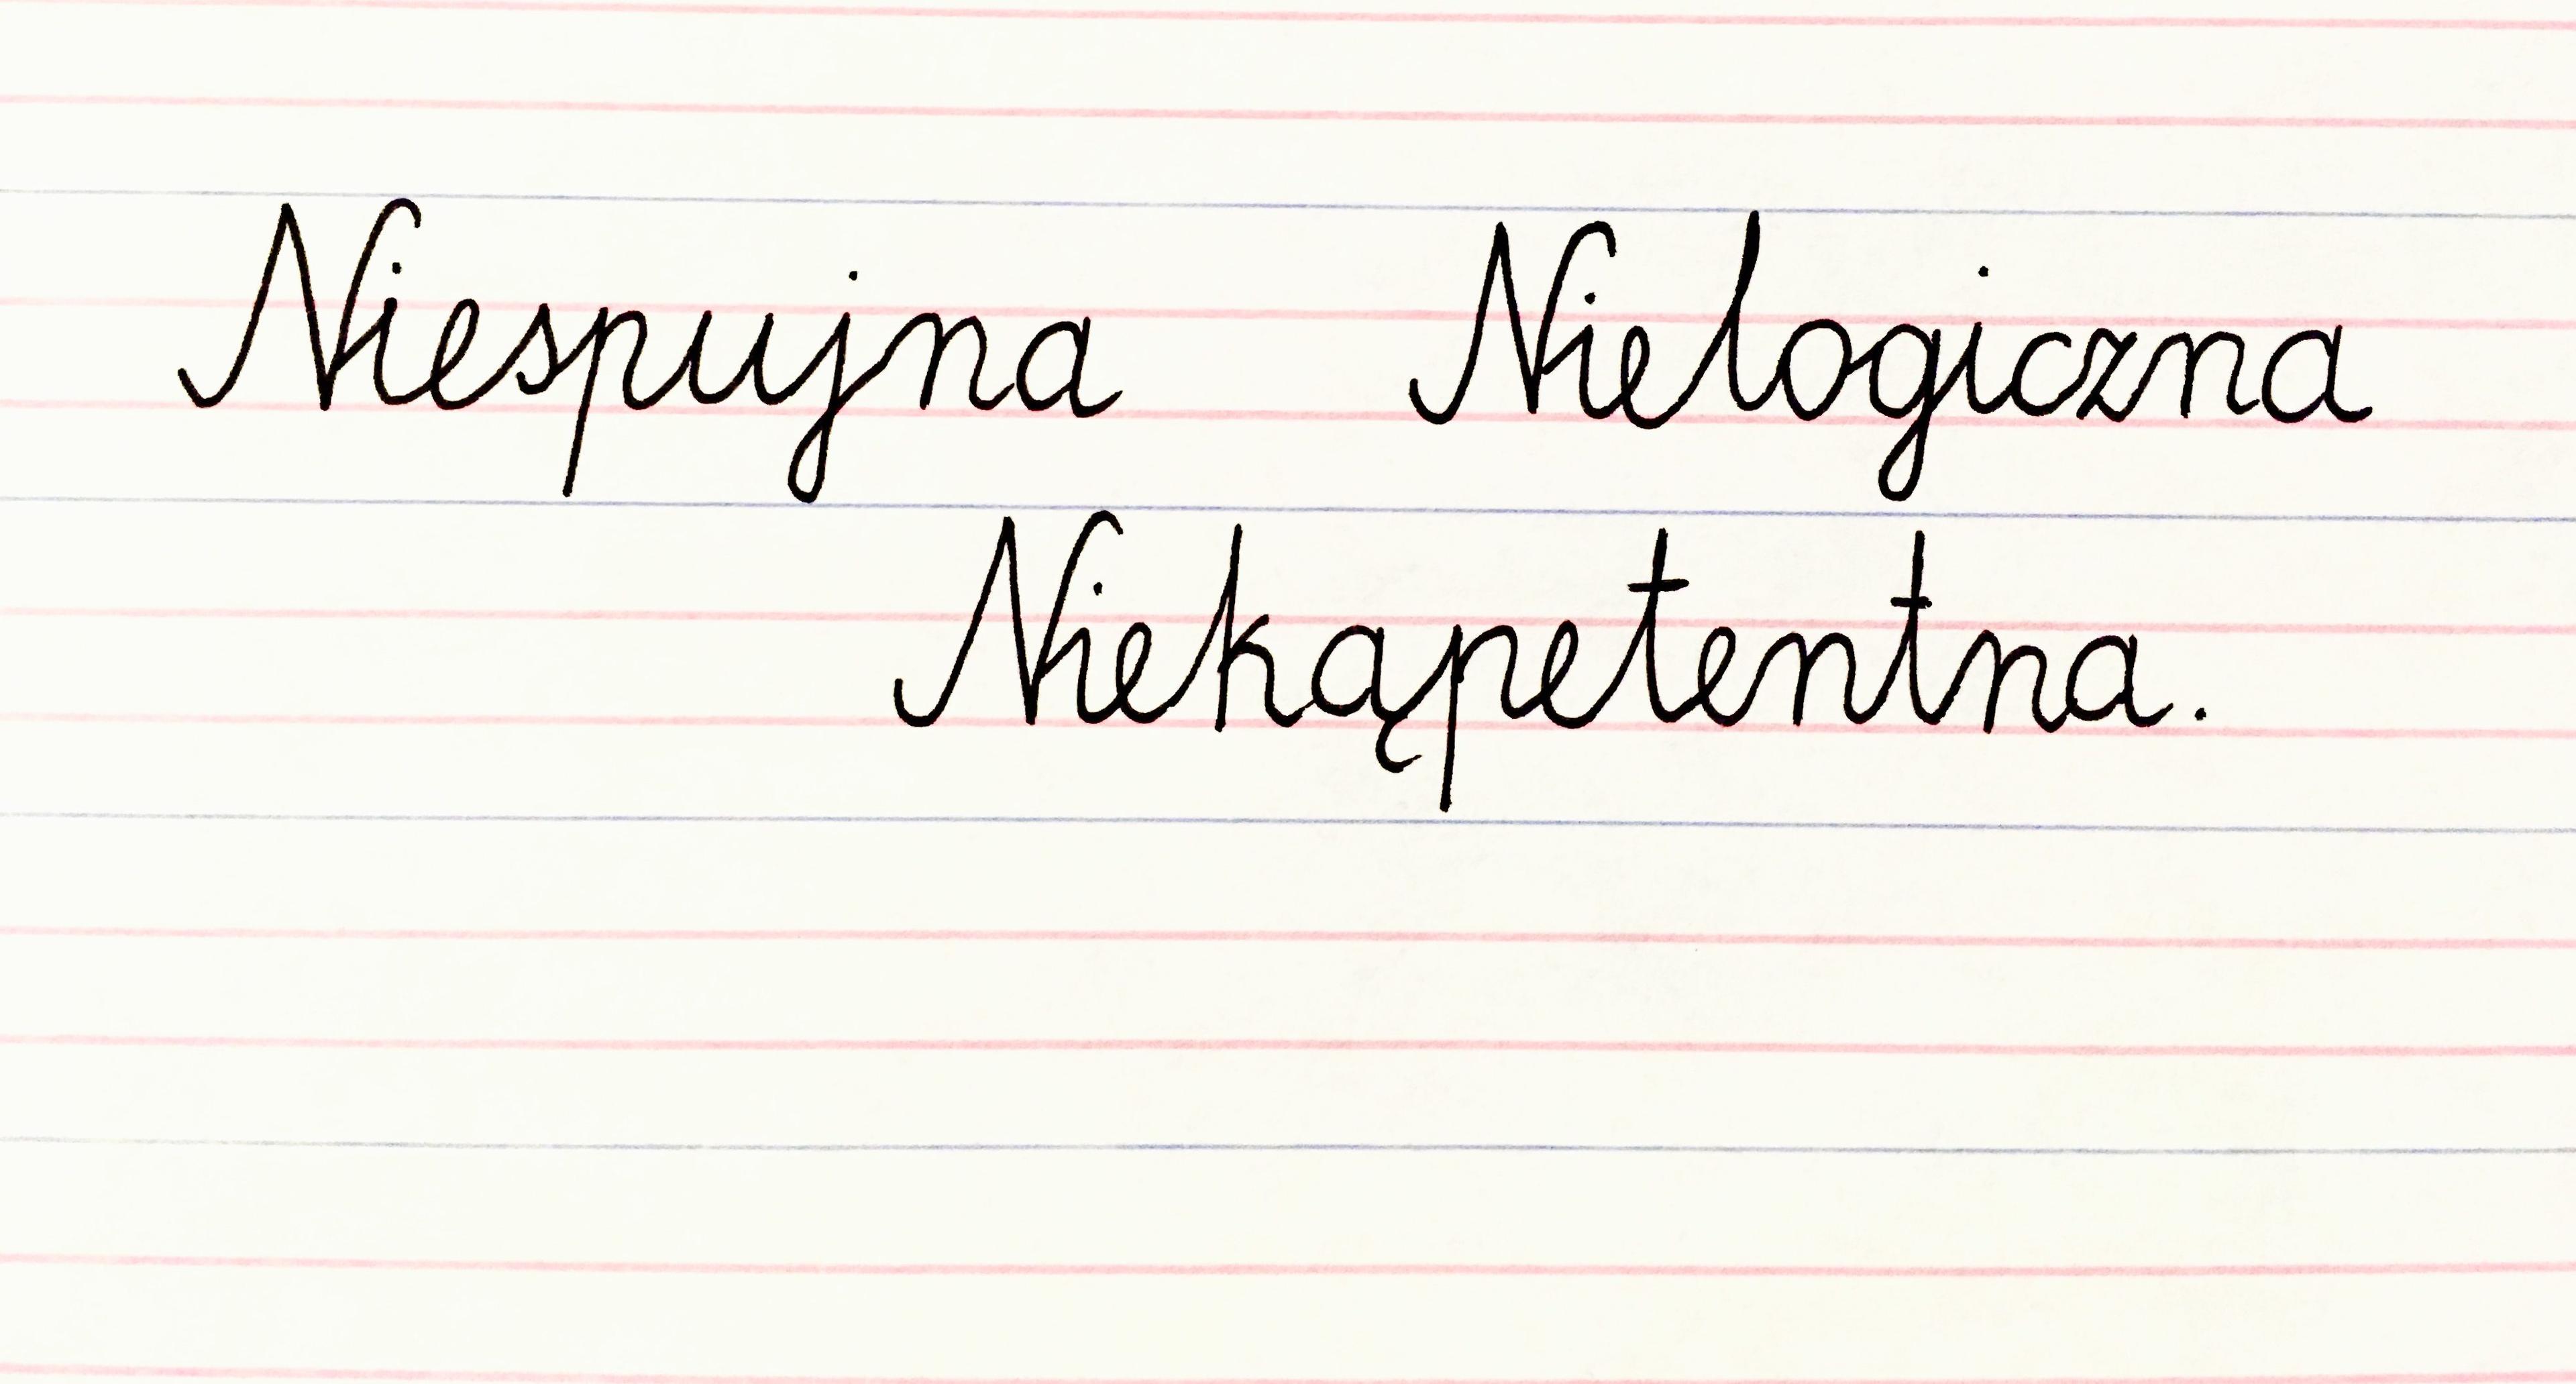 Niespujna Nielogiczna
Niekąpetentna.